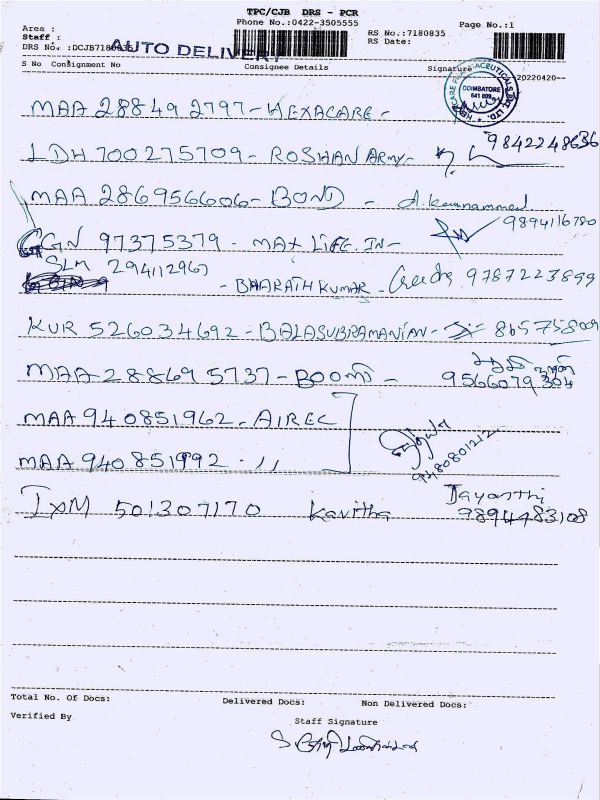 TPC/CJB DRS - PCR
Phone No.:0422-3505555
Page No.:1
Area :
Staff :
DRS No. :DCJB7180835
AUTO DELIVERY
RS No.:7180835
RS Date:
S No Consignment No Consignee Details Signature
20220420
COIMBATORE
641 009
MAA 288492797 - HEXACARE -
9842248636
LDH 700275709 - ROSHAN ARMY -
MAA 286956606 - BOND -
9894116780
CGN 97375379 - MAX LIFE IN -
SLM 294112967
- BHARATH KUMAR - 9787223899
KUR 526034692 - BALASUBRAMANIAN - 865758009
MAA 288695737 -
9566079304
MAA 940851962 - AIREC
MAA 940851992 - ,,
9480801212
IXM 501307170 Kavitha Jayanthi
9894483108
Total No. Of Docs: Delivered Docs: Non Delivered Docs:
Verified By
Staff Signature